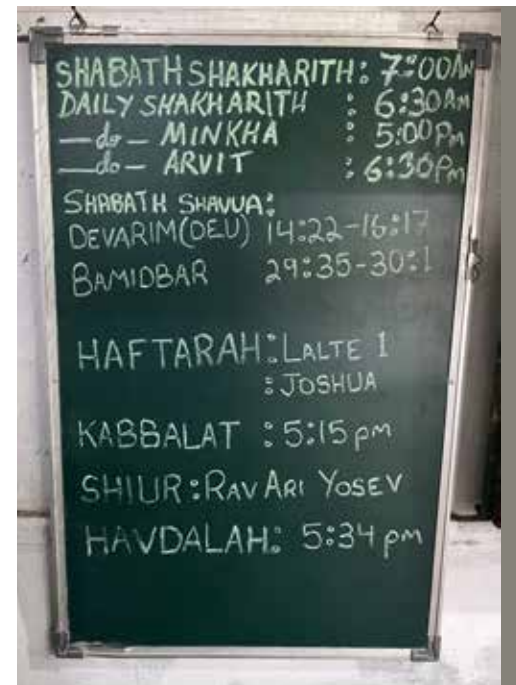 SHABATH SHAKHARITH : 7:00AM
DAILY SHAKHARITH : 6:30AM
—do— MINKHA : 5:00PM
—do— ARVIT : 6:30PM
SHABATH SHAVUA:
DEVARIM(DEU) 14:22-16:17
BAMIDBAR 29:35-30:1
HAFTARAH : LALTE 1
: JOSHUA
KABBALAT : 5:15 pm
SHIUR : RAV ARI YOSEV
HAVDALAH : 5:34 pm